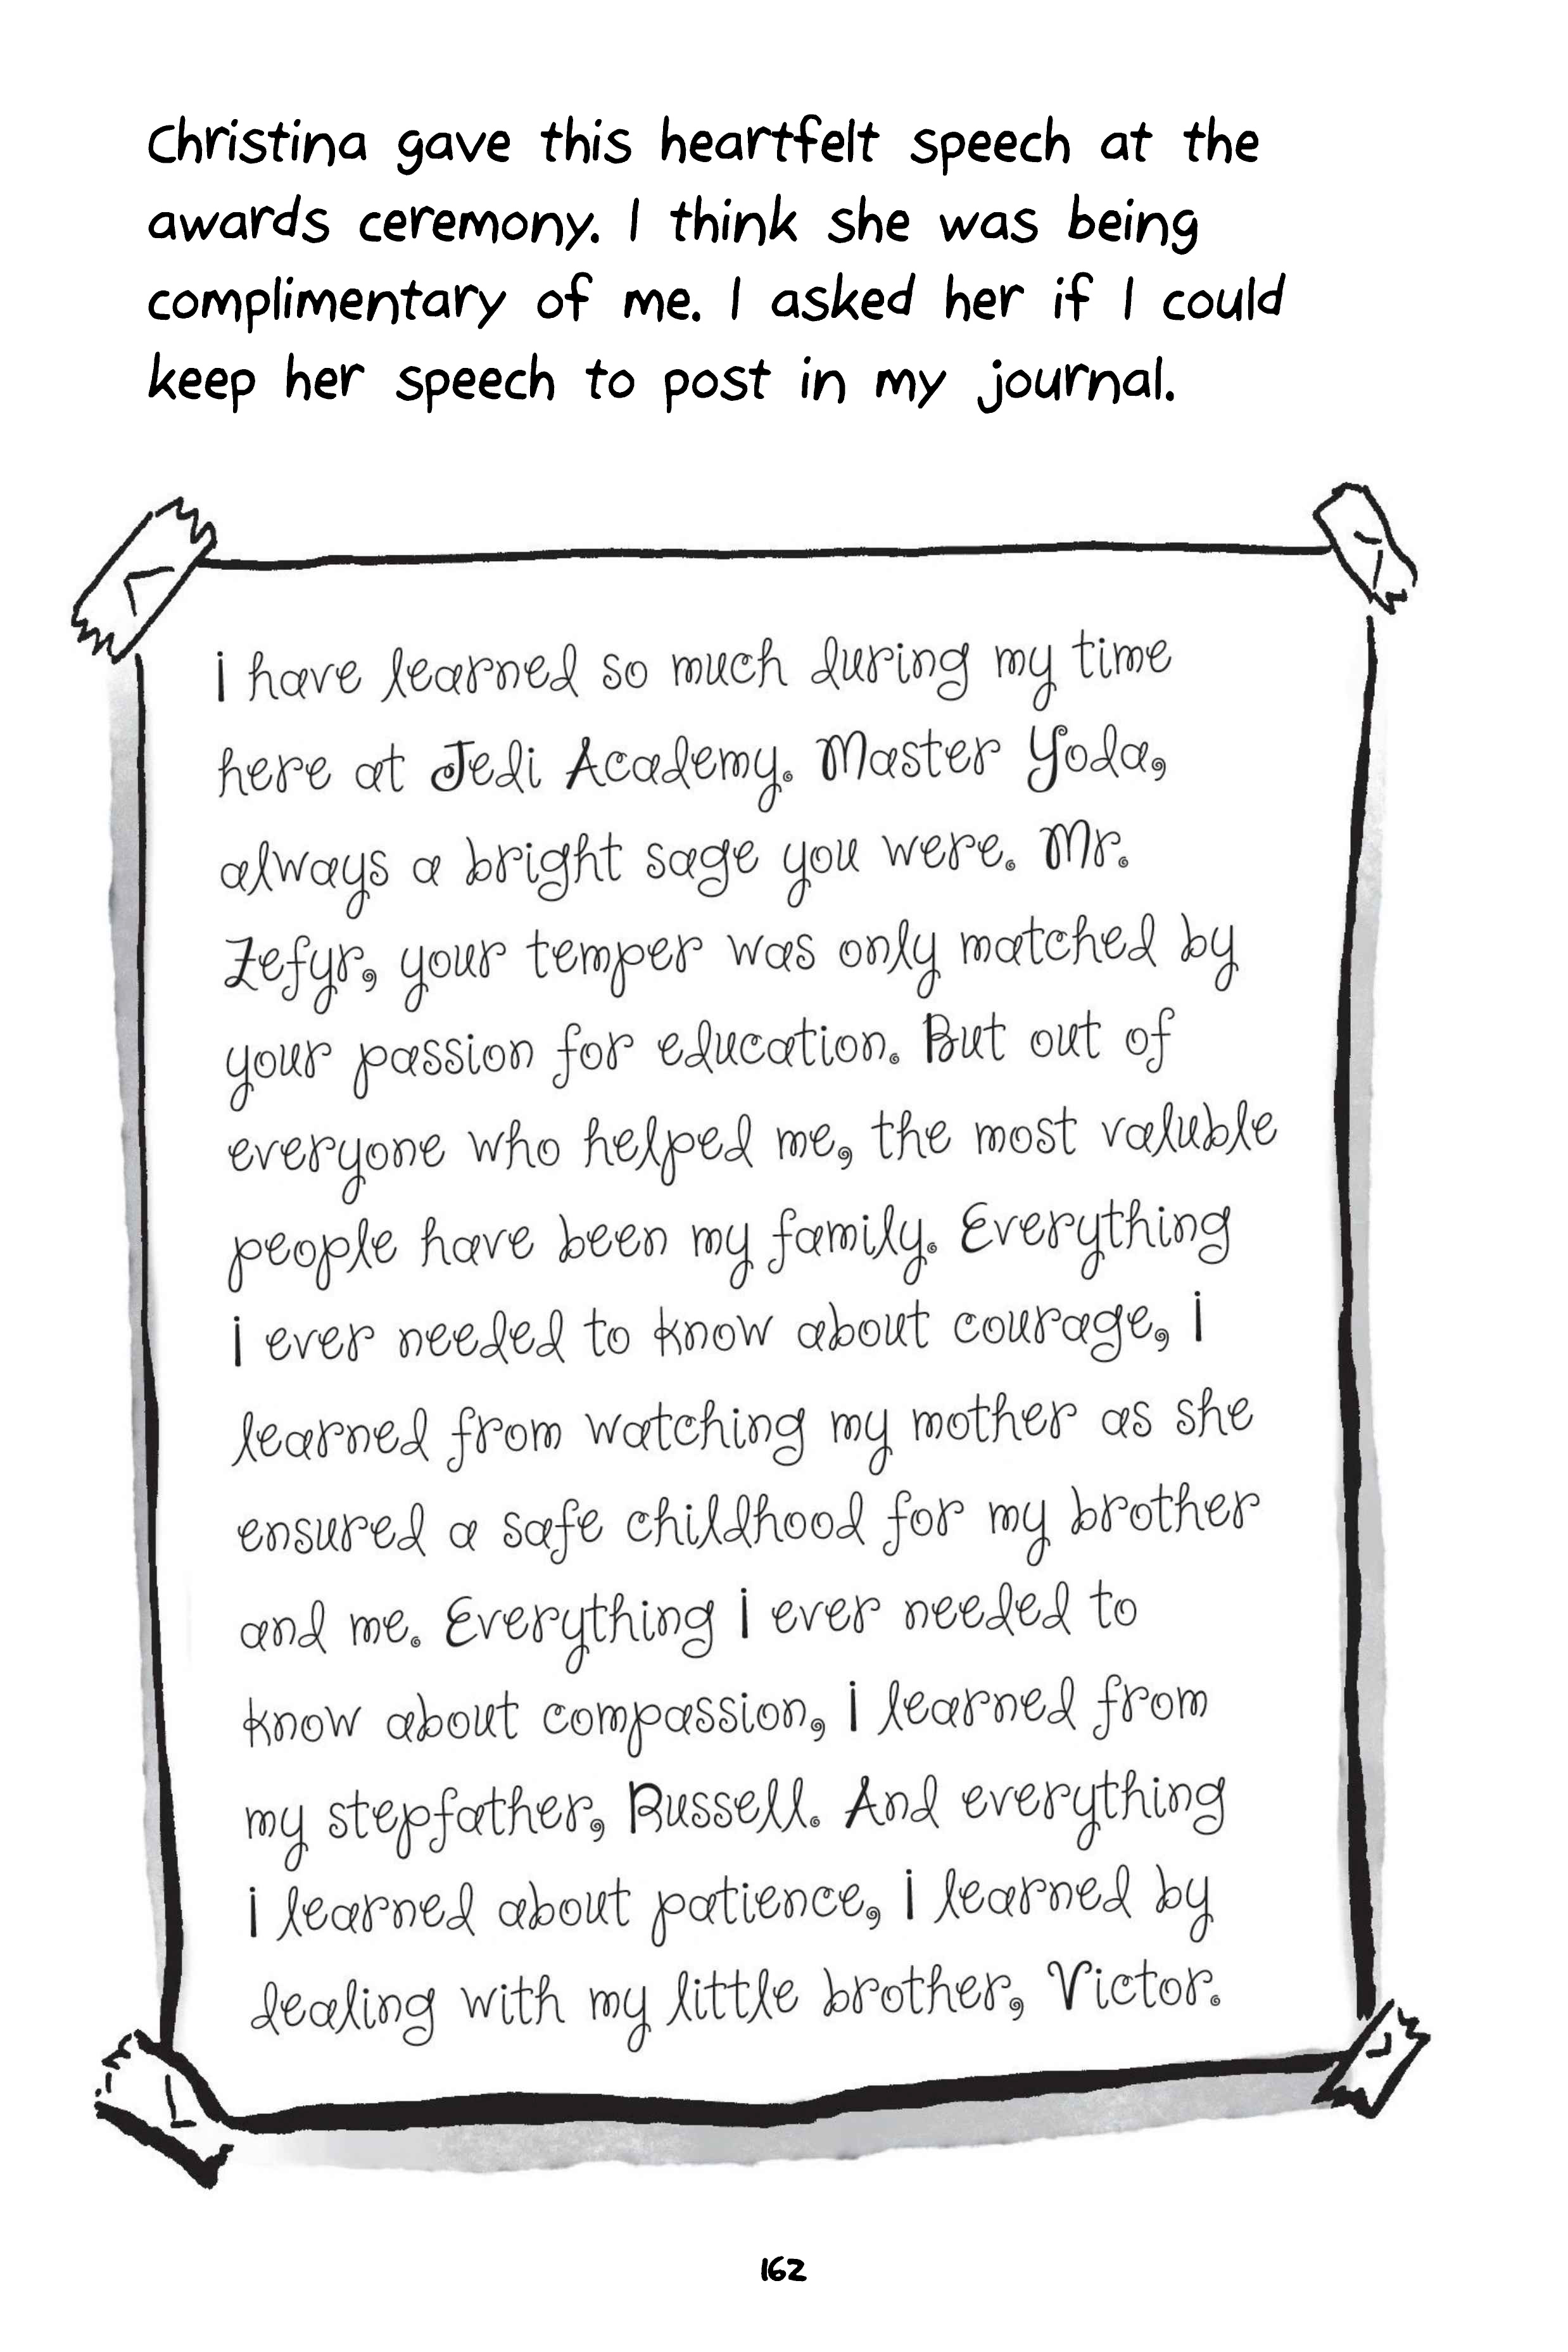 Christina gave this heartfelt speech at the
awards ceremony. I think she was being
complimentary of me. I asked her if I could
keep her speech to post in my journal.
i have learned so much during my time
here at Jedi Academy. Master Yoda,
always a bright sage you were. Mr.
Zefyr, your temper was only matched by
your passion for education. But out of
everyone who helped me, the most valuble
people have been my family. Everything
i ever needed to know about courage, i
learned from watching my mother as she
ensured a safe childhood for my brother
and me. Everything i ever needed to
know about compassion, i learned from
my stepfather, Russell. And everything
i learned about patience, i learned by
dealing with my little brother, Victor.
162